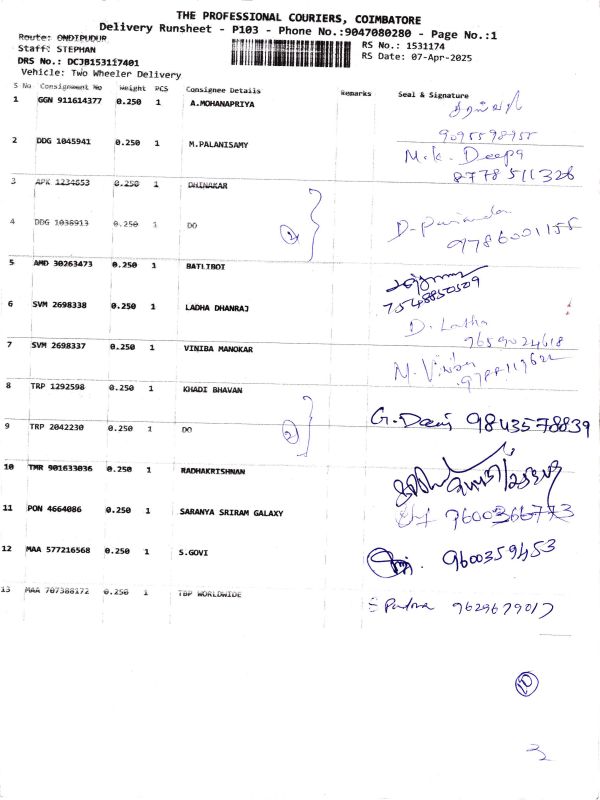 THE PROFESSIONAL COURIERS, COIMBATORE
Delivery Runsheet - P103 - Phone No.:9047080280 - Page No.:1
Route: ONDIPUDUR
RS No.: 1531174
Staff: STEPHAN
RS Date: 07-Apr-2025
DRS No.: DCJB153117401
Vehicle: Two Wheeler Delivery
S No Consignment No Weight PCS Consignee Details Remarks Seal & Signature
1 GGN 911614377 0.250 1 A.MOHANAPRIYA
2 DDG 1045941 0.250 1 M.PALANISAMY M.K. Deepa
8778 511326
3 APK 1234653 0.250 1 DHINAKAR
4 DDG 1038913 0.250 1 DO 2 D-
9786001155
5 AMD 30263473 0.250 1 BATLIBOI
6 SVM 2698338 0.250 1 LADHA DHANRAJ D. Latha
9659024618
7 SVM 2698337 0.250 1 VINIBA MANOKAR M.
8 TRP 1292598 0.250 1 KHADI BHAVAN
G. 9843578839
9 TRP 2042230 0.250 1 DO 2
10 TMR 901633036 0.250 1 RADHAKRISHNAN
11 PON 4664086 0.250 1 SARANYA SRIRAM GALAXY 9600366773
12 MAA 577216568 0.250 1 S.GOVI 9600359453
13 MAA 707388172 0.250 1 TBP WORLDWIDE 9629679017
10